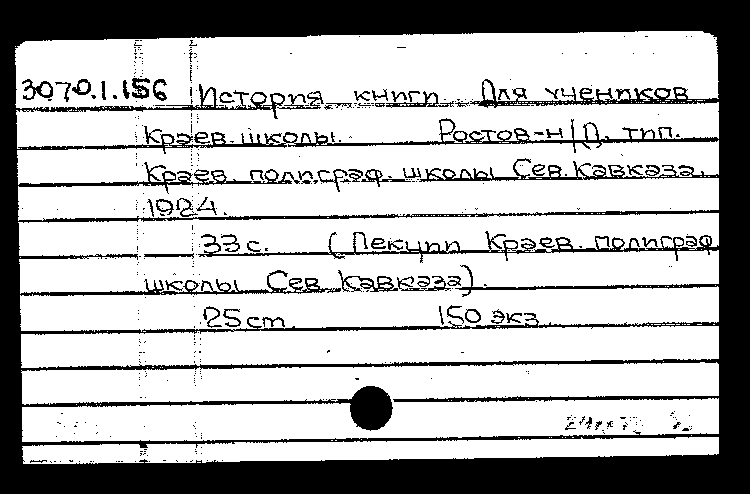 3070.1.156 История книги Для учеников
Краев. школы. Ростов-н/Д. тип.
Краев. полиграф. школы Сев. Кавказа.
1924.
33 с. (Лекции Краев. полиграф
школы Сев Кавказа).
25 cm. 150 экз.